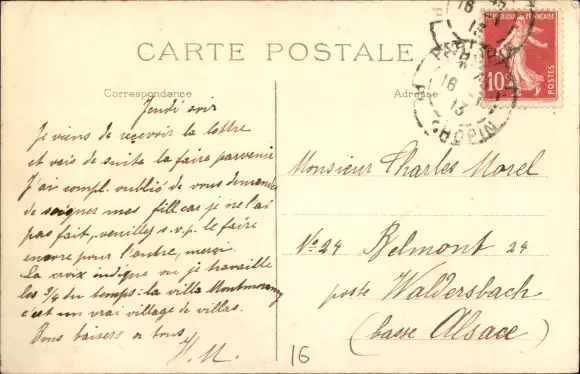 CARTE POSTALE
Correspondance
Adresse
RÉPUBLIQUE FRANÇAISE
10
POSTES
Jeudi soir
Je viens de recevoir la lettre
et vais de suite la faire parvenir
J'ai compl. oublié de vous demander
de soigner mes fill. car je ne l'ai
pas fait, veuillez s.v.p. le faire
encore pour l'autre, merci.
La croix indique ou je travaille
les 3/4 du temps: la villa Montmorency
c'est un vrai village de villas.
Bons baisers a tous
H. M.
Monsieur Charles Morel
No 24 Belmont 24
poste Waldersbach
(basse Alsace)
16